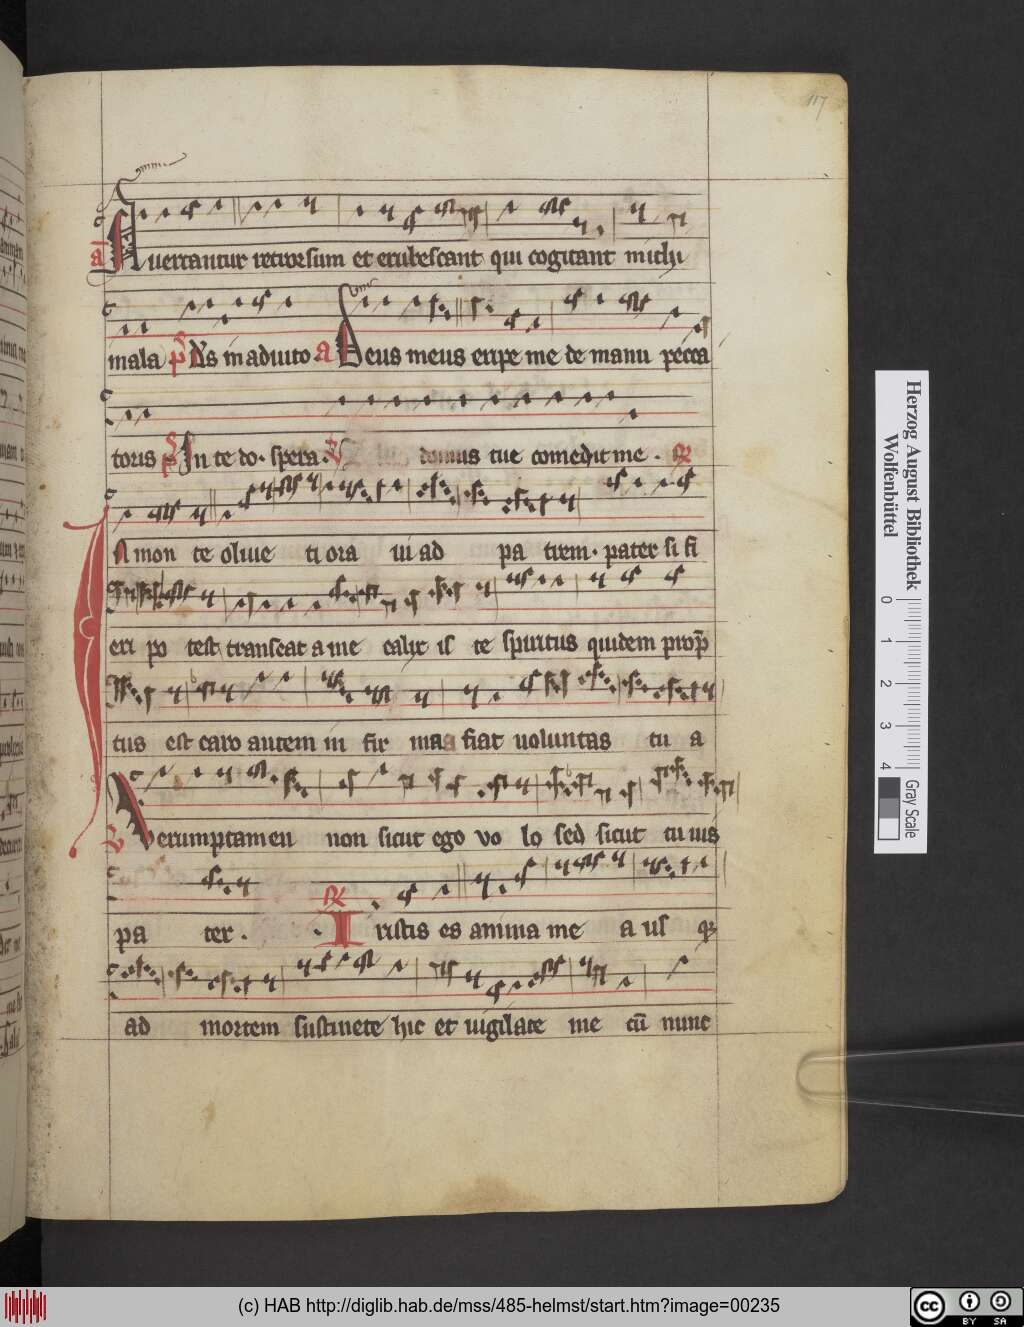 117
a Auertantur retrorsum et erubescant qui cogitant michi
mala ps Ds in adiuto a Deus meus eripe me de manu pecca
toris ps In te do. spera. domus tue comedit me.
In mon te oliue ti ora ui ad pa trem. pater si fi
eri po test transeat a me calix is te spiritus quidem prop
tus est caro autem in fir ma fiat uoluntas tu a
Verumptamen non sicut ego vo lo sed sicut tu uis
pa ter. Tristis es anima me a us qz
ad mortem sustinete hic et uigilate me cū nunc
Herzog August Bibliothek
Wolfenbüttel
0 1 2 3 4
Gray Scale
(c) HAB http://diglib.hab.de/mss/485-helmst/start.htm?image=00235
cc BY SA